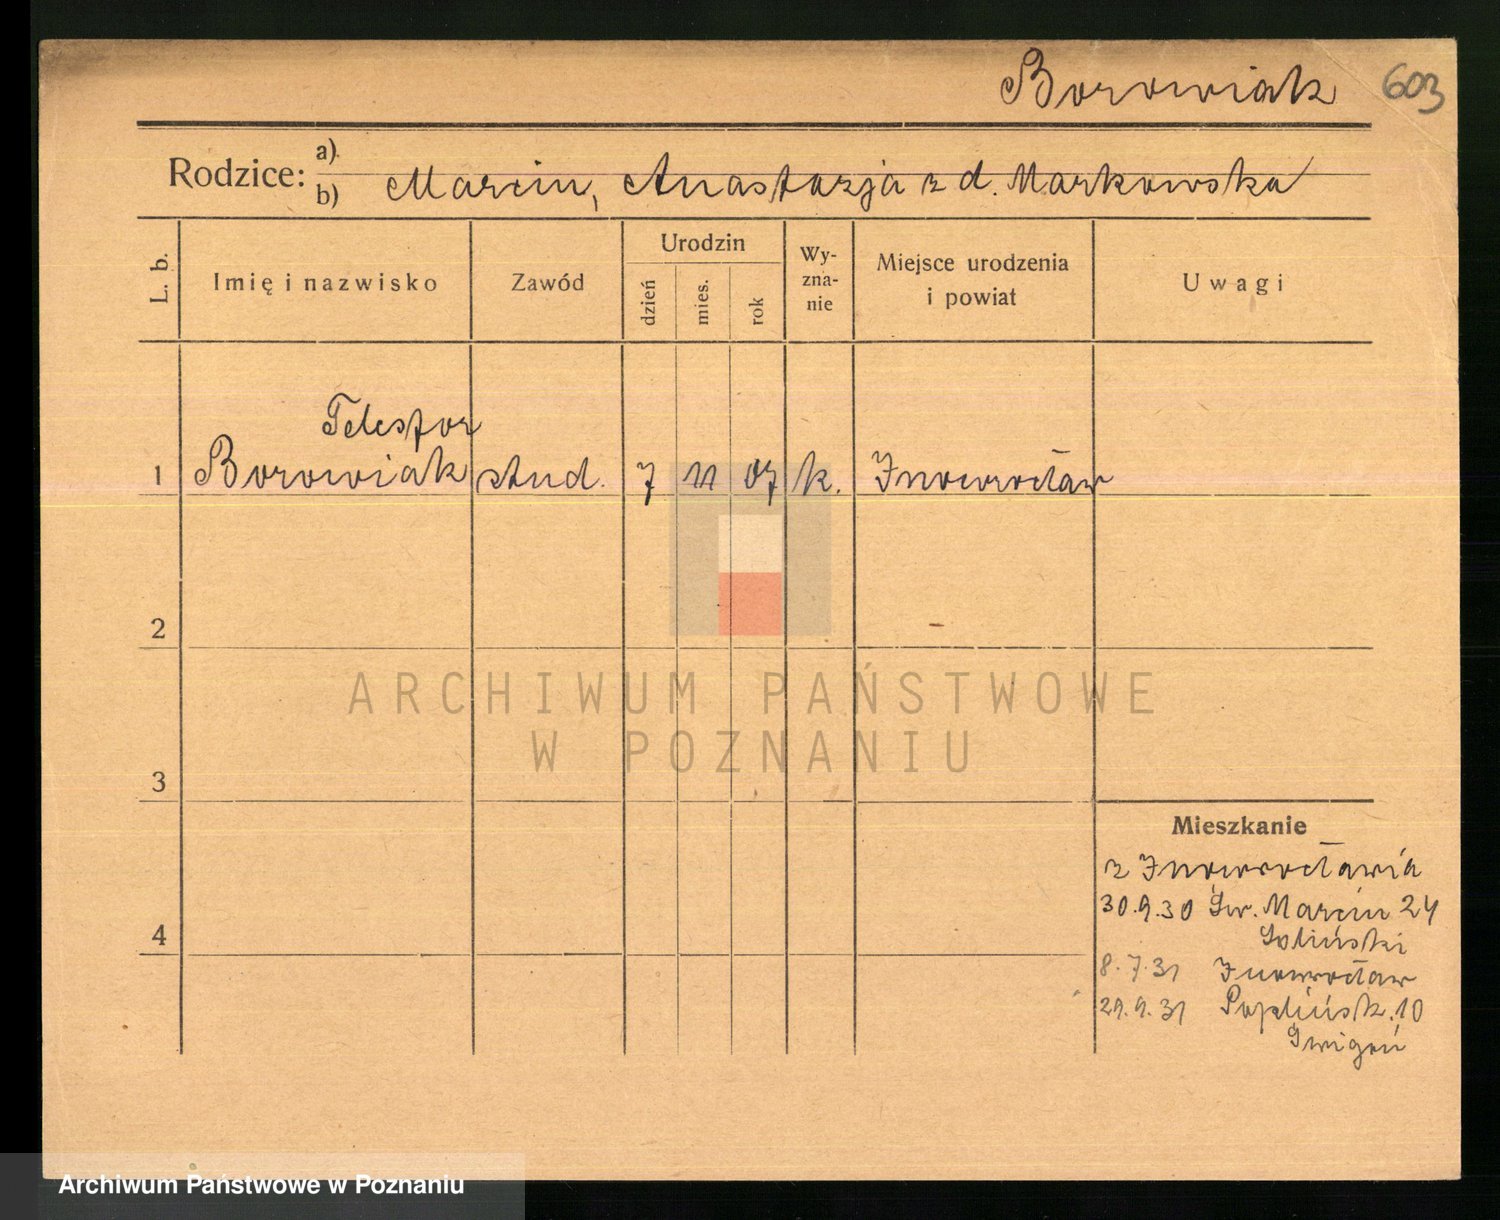 Borowiak 603
Rodzice: a)
b) Marcin, Anastazja z d. Markowska
L. b.
Imię i nazwisko
Zawód
Urodzin
dzień
mies.
rok
Wy-
zna-
nie
Miejsce urodzenia
i powiat
Uwagi
Telesfor
1 Borowiak stud. 7 11 07 k. Inowrocław
2
3
4
Mieszkanie
z Inowrocławia
30.9.30 Św. Marcin 24
Soliński
8.7.31 Inowrocław
29.9.31 10
ARCHIWUM PAŃSTWOWE
W POZNANIU
Archiwum Państwowe w Poznaniu